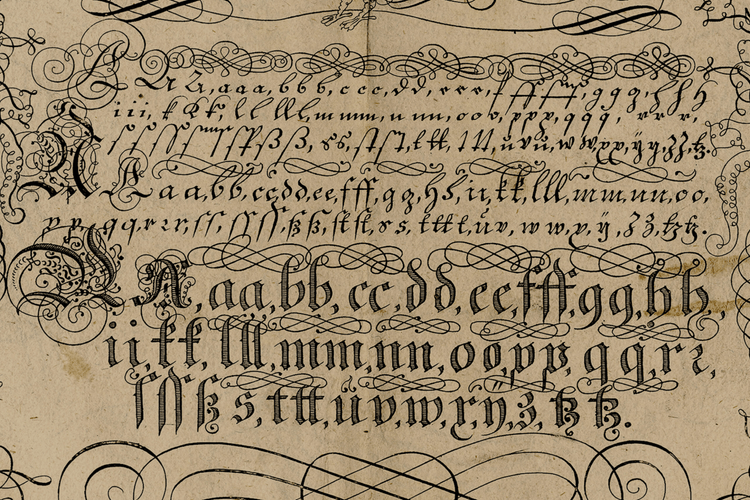 A A A, a a a, b b b, c c c, d d, e e e, f ff ff, g g g, h h h
i i i, k k k, l l l l l, m mm, n nn, o o o, p p p, q q q, r r r,
ß ß, s s, st st, t tt, t t t, u v ü, w w, x y, ÿ y, z z, tz.
A A a a, b b, c c, d d, e e, f ff, g g, h h, i i, k k, l l l, m m, n n, o o,
p p, q q, r r r, ſ ſ, ſ ſ ſ ſ, ß ß, ſt ſt, s s, t t t t, u v, w w, x, ÿ, z z, tz tz.
A A, a a a, b b, c c, d d, e e, f f f, g g, h h,
i i, k k, l l l, m m, n n, o o, p p, q q, r r,
ſ ſ ſ ß s, t t t, ü v, w, x, ÿ, z, tz tz.